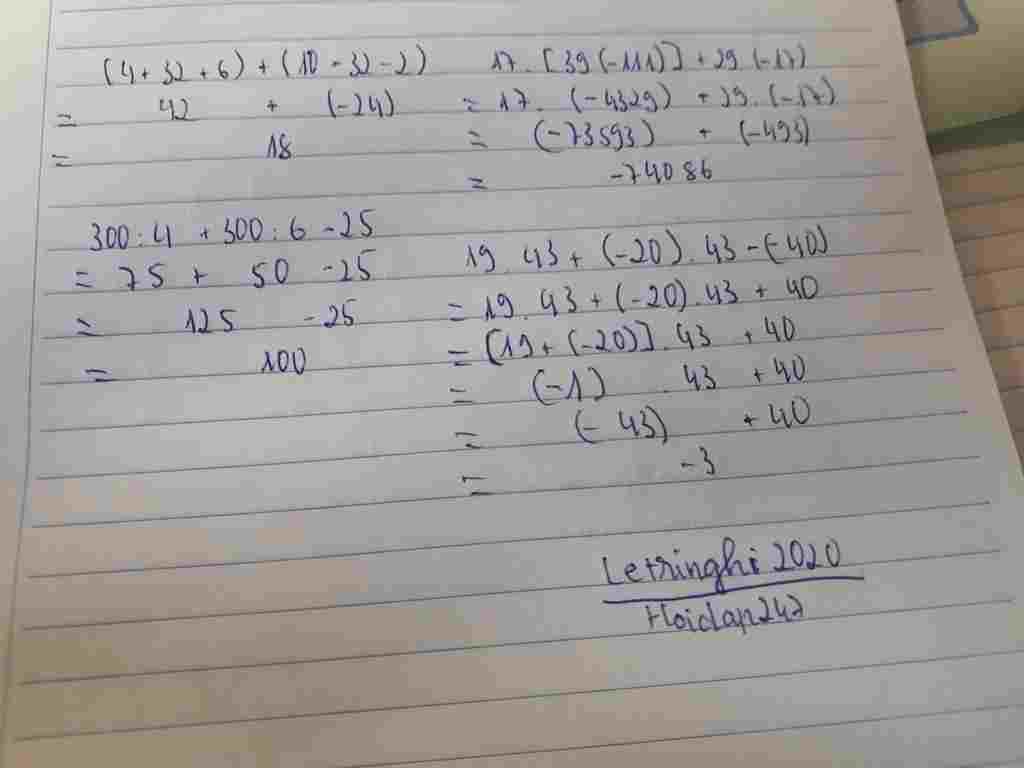 (4 + 32 + 6) + (10 - 32 - 2)
= 42 + (-24)
= 18
300 : 4 + 300 : 6 - 25
= 75 + 50 - 25
= 125 - 25
= 100
17 . [39 (-111)] + 29 (-17)
= 17 . (-4329) + 29 . (-17)
= (-73593) + (-493)
= -74086
19 . 43 + (-20) . 43 - (-40)
= 19 . 43 + (-20) . 43 + 40
= [19 + (-20)] . 43 + 40
= (-1) . 43 + 40
= (-43) + 40
= -3
Letringhi 2020
Hoidap247